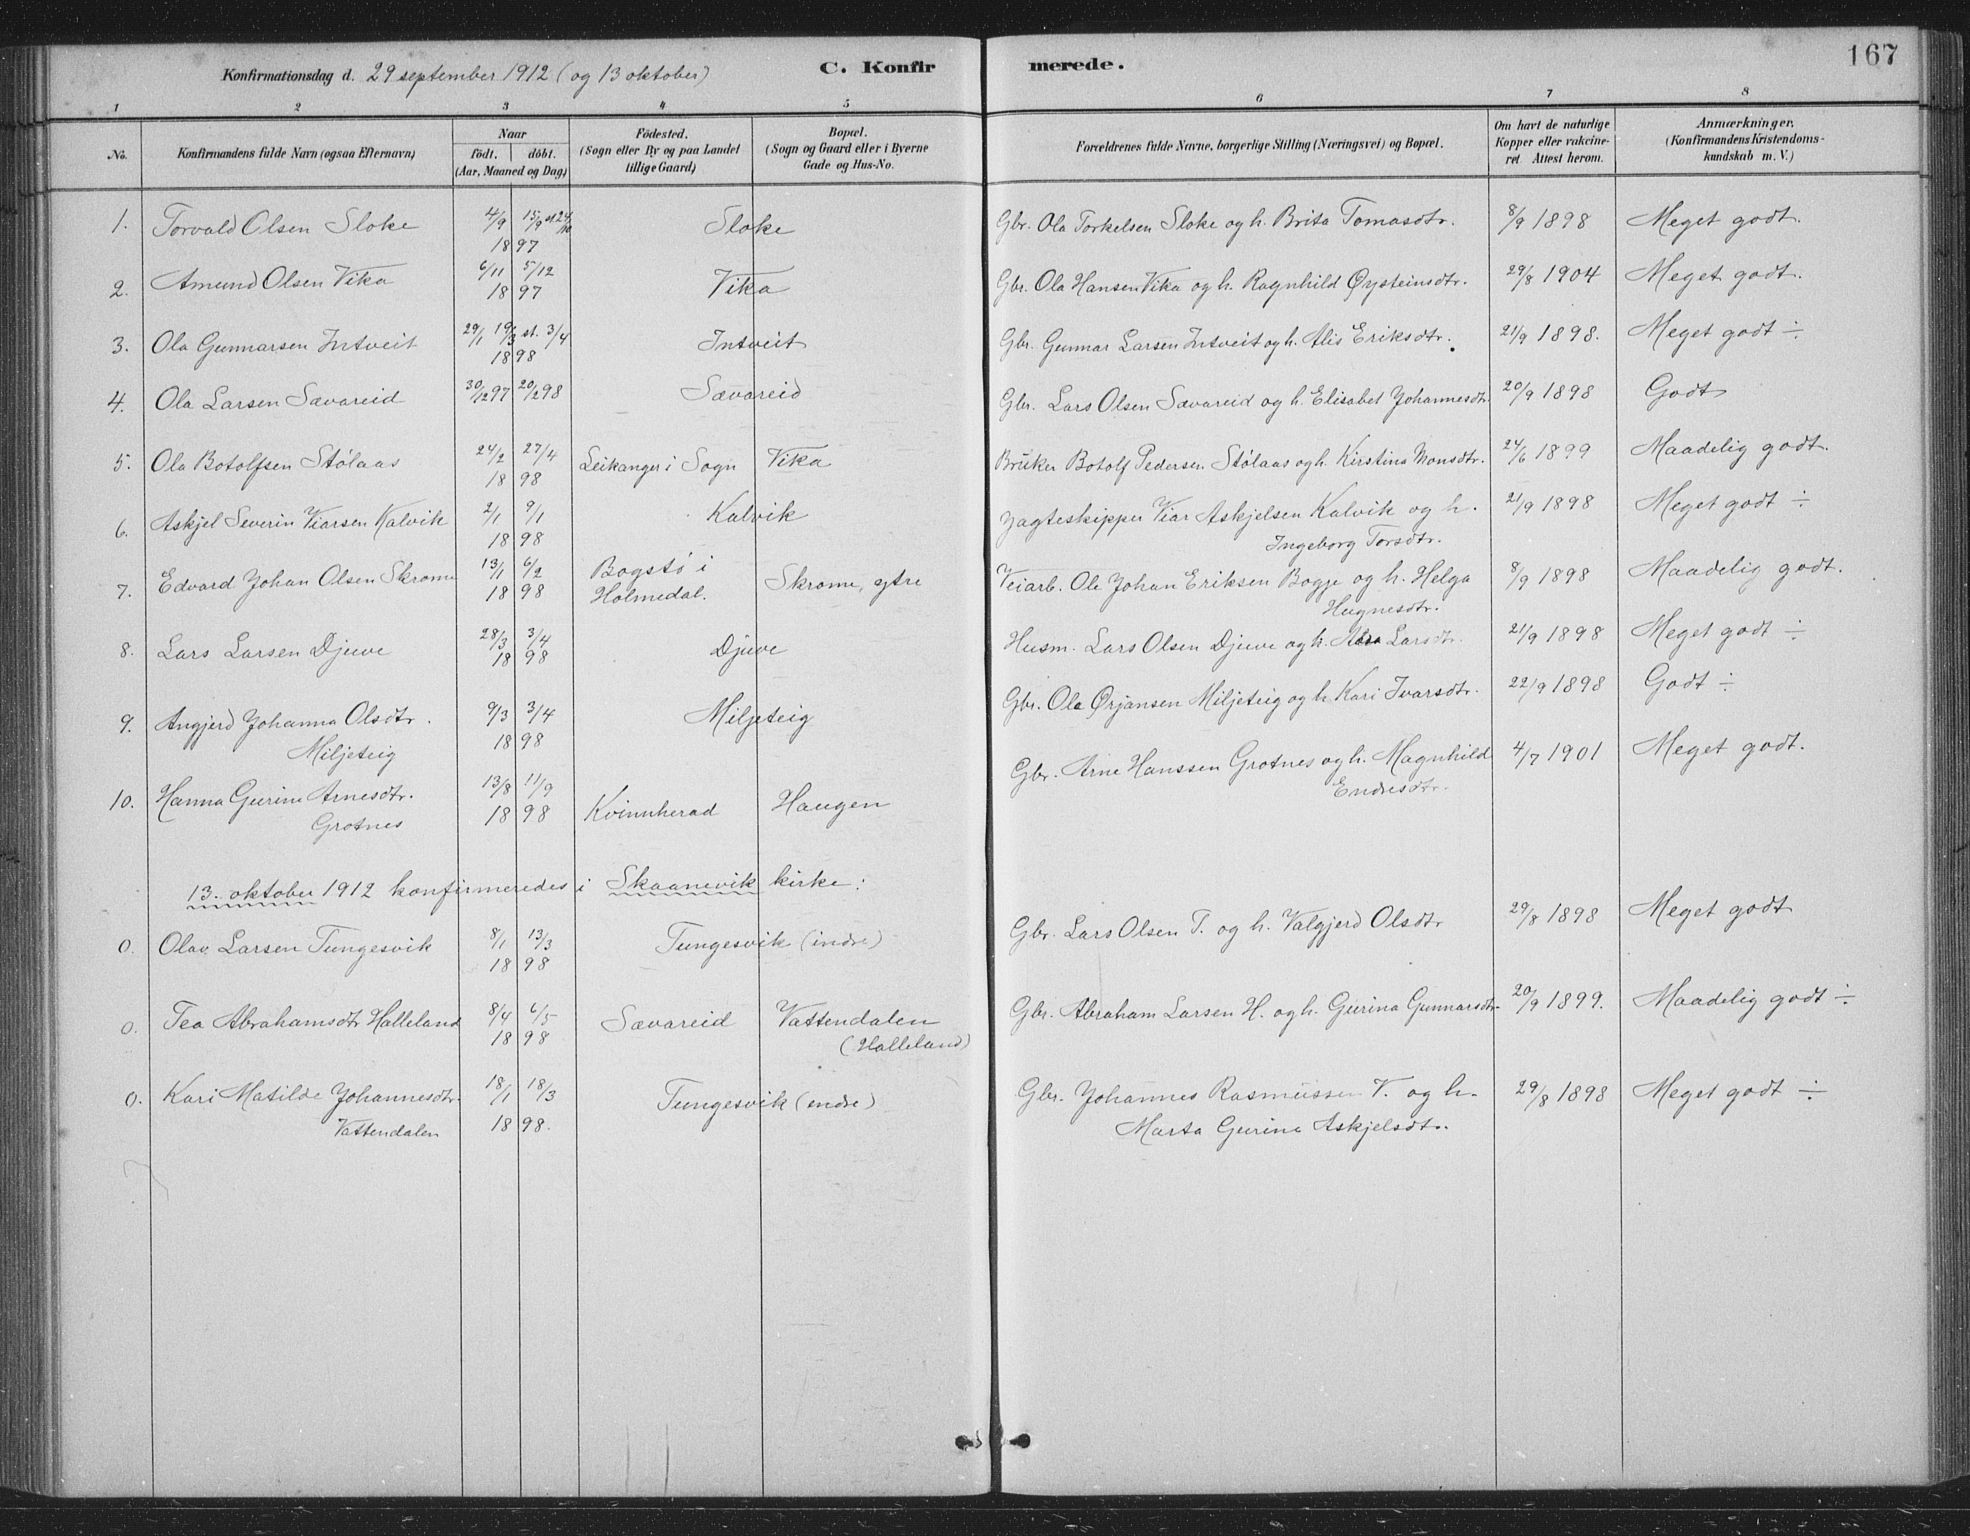 167
Konfirmationsdag d. 29 september 1912 (og 13 oktober) C. Konfirmerede.
1 2 3 4 5 6 7 8
No. Konfirmandens fulde Navn (ogsaa Efternavn)
Naar
födt. döbt.
(Aar, Maaned og Dag)
Födested.
(Sogn eller By og paa Landet
tillige Gaard)
Bopæl.
(Sogn og Gaard eller i Byerne
Gade og Hus-No.
Forældrenes fulde Navne, borgerlige Stilling (Næringsvei) og Bopæl.
Om havt de naturlige
Kopper eller vakcine-
ret. Attest herom.
Anmærkninger.
(Konfirmandens Kristendoms-
kundskab m. V.)
1. Torvald Olsen Sloke 4/9 15/9 st. 24/10 Sloke Gbr. Ola Torkelsen Sloke og h. Brita Tomasdtr. 8/9 1898 Meget godt.
1897
2. Amund Olsen Vika 6/11 5/12 Vika Gbr. Ola Hansen Vika og h. Ragnhild Øysteinsdtr. 29/8 1904 Meget godt.
1897
3. Ola Gunnarsen Intveit 29/1 19/3 st. 3/4 Intveit Gbr. Gunnar Larsen Intveit og h. Alis Eriksdtr. 21/9 1898. Meget godt ÷
1898
4. Ola Larsen Sævareid 30/12 97 20/2 98 Sævareid Gbr. Lars Olsen Sævareid og h. Elisabet Johannesdtr. 20/9 1898 Godt
5. Ola Botolfsen Stølaas 24/2 27/4 Leikanger i Sogn Vika Bruker Botolf Pedersen Stølaas og h. Kirstina Monsdtr. 24/6 1899 Maadelig godt.
1898
6. Askjel Severin Viarsen Kalvik 2/1 9/1 Kalvik Jagteskipper Viar Askjelsen Kalvik og h. 21/9 1898 Meget godt ÷
1898 Ingeborg Torsdtr.
7. Edvard Johan Olsen Skrome 13/1 6/2 Bogstø i Skrome, ytre Veiarb. Ole Johan Eriksen Bogje og h. Helga 8/9 1898 Maadelig godt.
1898 Holmedal. Hugnesdtr.
8. Lars Larsen Djuve 28/3 3/4 Djuve Husm. Lars Olsen Djuve og h. Larsdtr. 21/9 1898 Meget godt ÷
1898
9. Angjerd Johanna Olsdtr. 9/3 3/4 Miljeteig Gbr. Ola Ørjansen Miljeteig og h. Kari Ivarsdtr. 22/9 1898 Godt ÷
Miljeteig 1898
10. Hanna Gurine Arnesdtr. 13/8 11/9 Kvinnherad Haugen Gbr. Arne Hanssen Grotnes og h. Magnhild 4/7 1901 Meget godt.
Grotnes 1898 Endresdtr.
13. oktober 1912 konfirmeredes i Skaanevik kirke:
0. Olav Larsen Tungesvik 8/1 13/3 Tungesvik (indre) Gbr. Lars Olsen T. og h. Valgjerd Olsdtr 29/8 1898 Meget godt
1898
0. Tea Abrahamsdtr Halleland 8/4 6/5 Sævareid Vattendalen Gbr. Abraham Larsen H. og h. Gurina Gunnarsdtr. 20/9 1899. Maadelig godt ÷
1898 (Halleland)
0. Kari Matilde Johannesdtr. 18/1 18/3 Tungesvik (indre) Gbr. Johannes Rasmussen V. og h. 29/8 1898 Meget godt ÷
Vattendalen 1898. Marta Gurine Askjelsdtr.